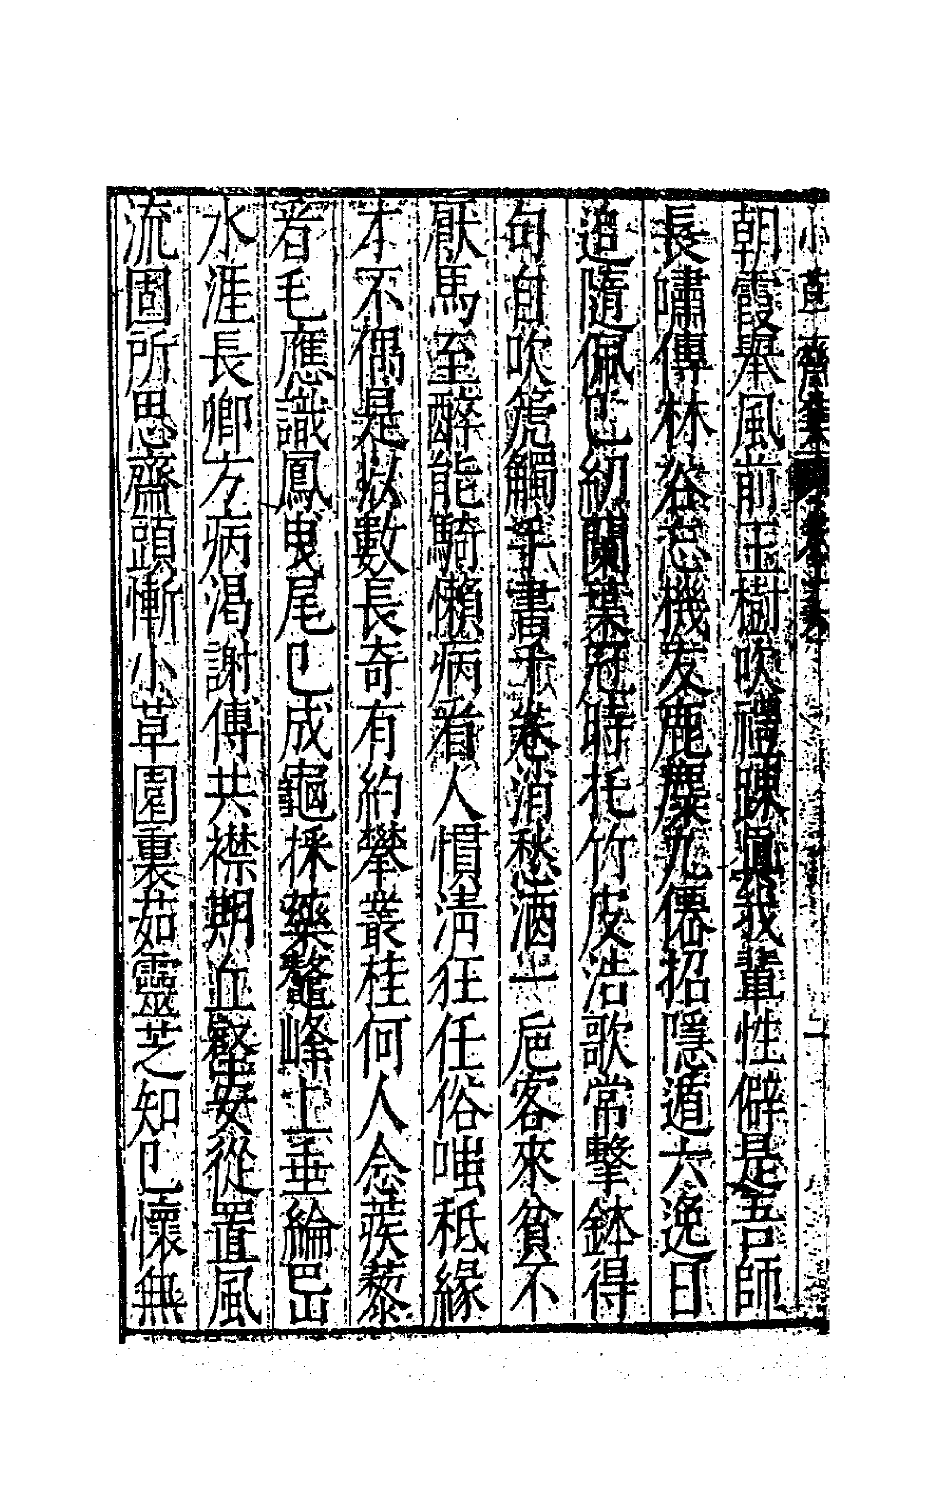 小草齋集 卷之 二
朝霞舉風前玉樹吹禢疎真我輩性僻是吾師
長嘯傳林谷忘機友鹿麋九僊招隱遁六逸日
追隨佩已紉蘭葉冠時托竹皮浩歌常擊鉢得
句自吹篪觸手書千卷消愁酒一巵客來貧不
厭馬至醉能騎懶病着人慣清狂任俗嗤秪緣
才不偶是以數長奇有約攀叢桂何人念蒺藜
者毛應識鳳曳尾已成龜採藥鼇峰上垂綸巴
水涯長卿方病渴謝傅共襟期丘壑安從置風
流固所思齋頭慚小草園裏茹靈芝知已懷無